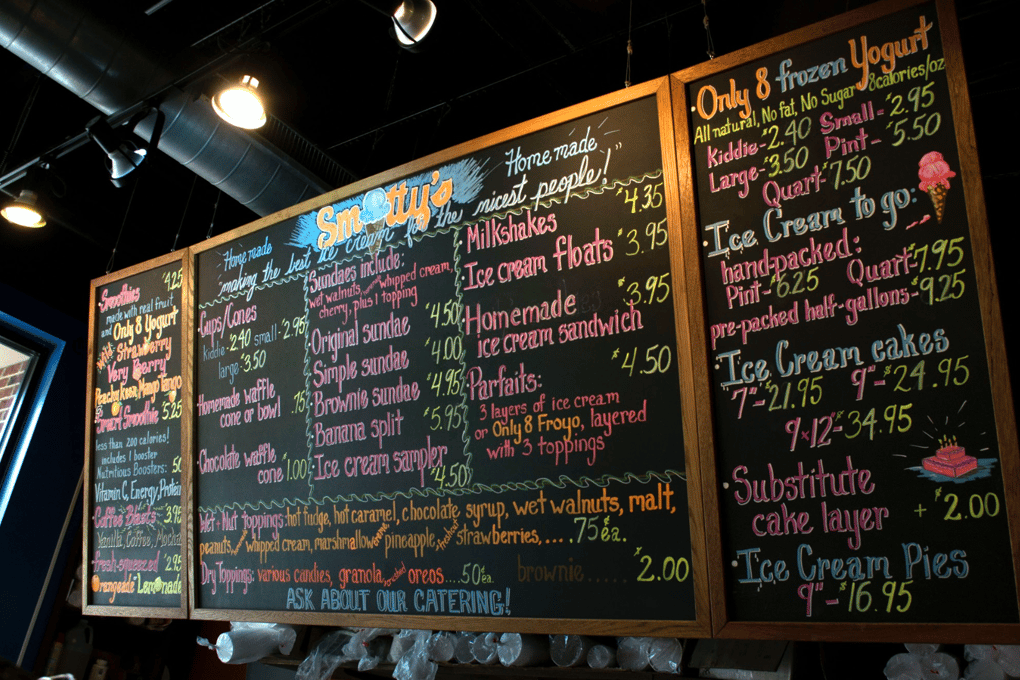 Smoothies $4.25
made with real fruit
and Only 8 Yogurt
Strawberry
Very Berry
Peachy Keen, Mango Tango
Smart Smoothie 5.25
less than 200 calories!
includes 1 booster
Nutritious Boosters: 50
Vitamin C, Energy, Protein
Coffee Blasts 3.95
Vanilla, Coffee, Mocha
fresh-squeezed $2.95
Orangeade Lemonade
Home made
Smotty's
Home made
"making the best ice cream for the nicest people!"
Cups/Cones
Kiddie-2.40 small-$2.95
large-$3.50
Homemade waffle
cone or bowl .75
Chocolate waffle
cone $1.00
Sundaes include:
wet walnuts, whipped cream,
cherry, plus 1 topping
Original sundae $4.50
Simple sundae $4.00
Brownie sundae $4.95
Banana split $5.95
Ice cream sampler $4.50
Milkshakes $4.35
Ice cream floats $3.95
Homemade
ice cream sandwich $3.95
Parfaits: $4.50
3 layers of ice cream
or Only 8 Froyo, layered
with 3 toppings
Wet + Nut toppings: hot fudge, hot caramel, chocolate syrup, wet walnuts, malt,
peanuts, whipped cream, marshmallow, pineapple, strawberries,.... .75¢ ea.
Dry Toppings: various candies, granola, crushed oreos....50¢ea. brownie...... $2.00
ASK ABOUT OUR CATERING!
Only 8 frozen Yogurt
All natural, No fat, No Sugar 8calories/oz
Kiddie-$2.40 Small-$2.95
Large-$3.50 Pint-$5.50
Quart-$7.50
Ice Cream to go:
hand-packed:
Pint-$6.25 Quart-$7.95
pre-packed half-gallons-$9.25
Ice Cream cakes
7"-$21.95 9"-$24.95
9x12-$34.95
Substitute
cake layer + $2.00
Ice Cream Pies
9"-$16.95